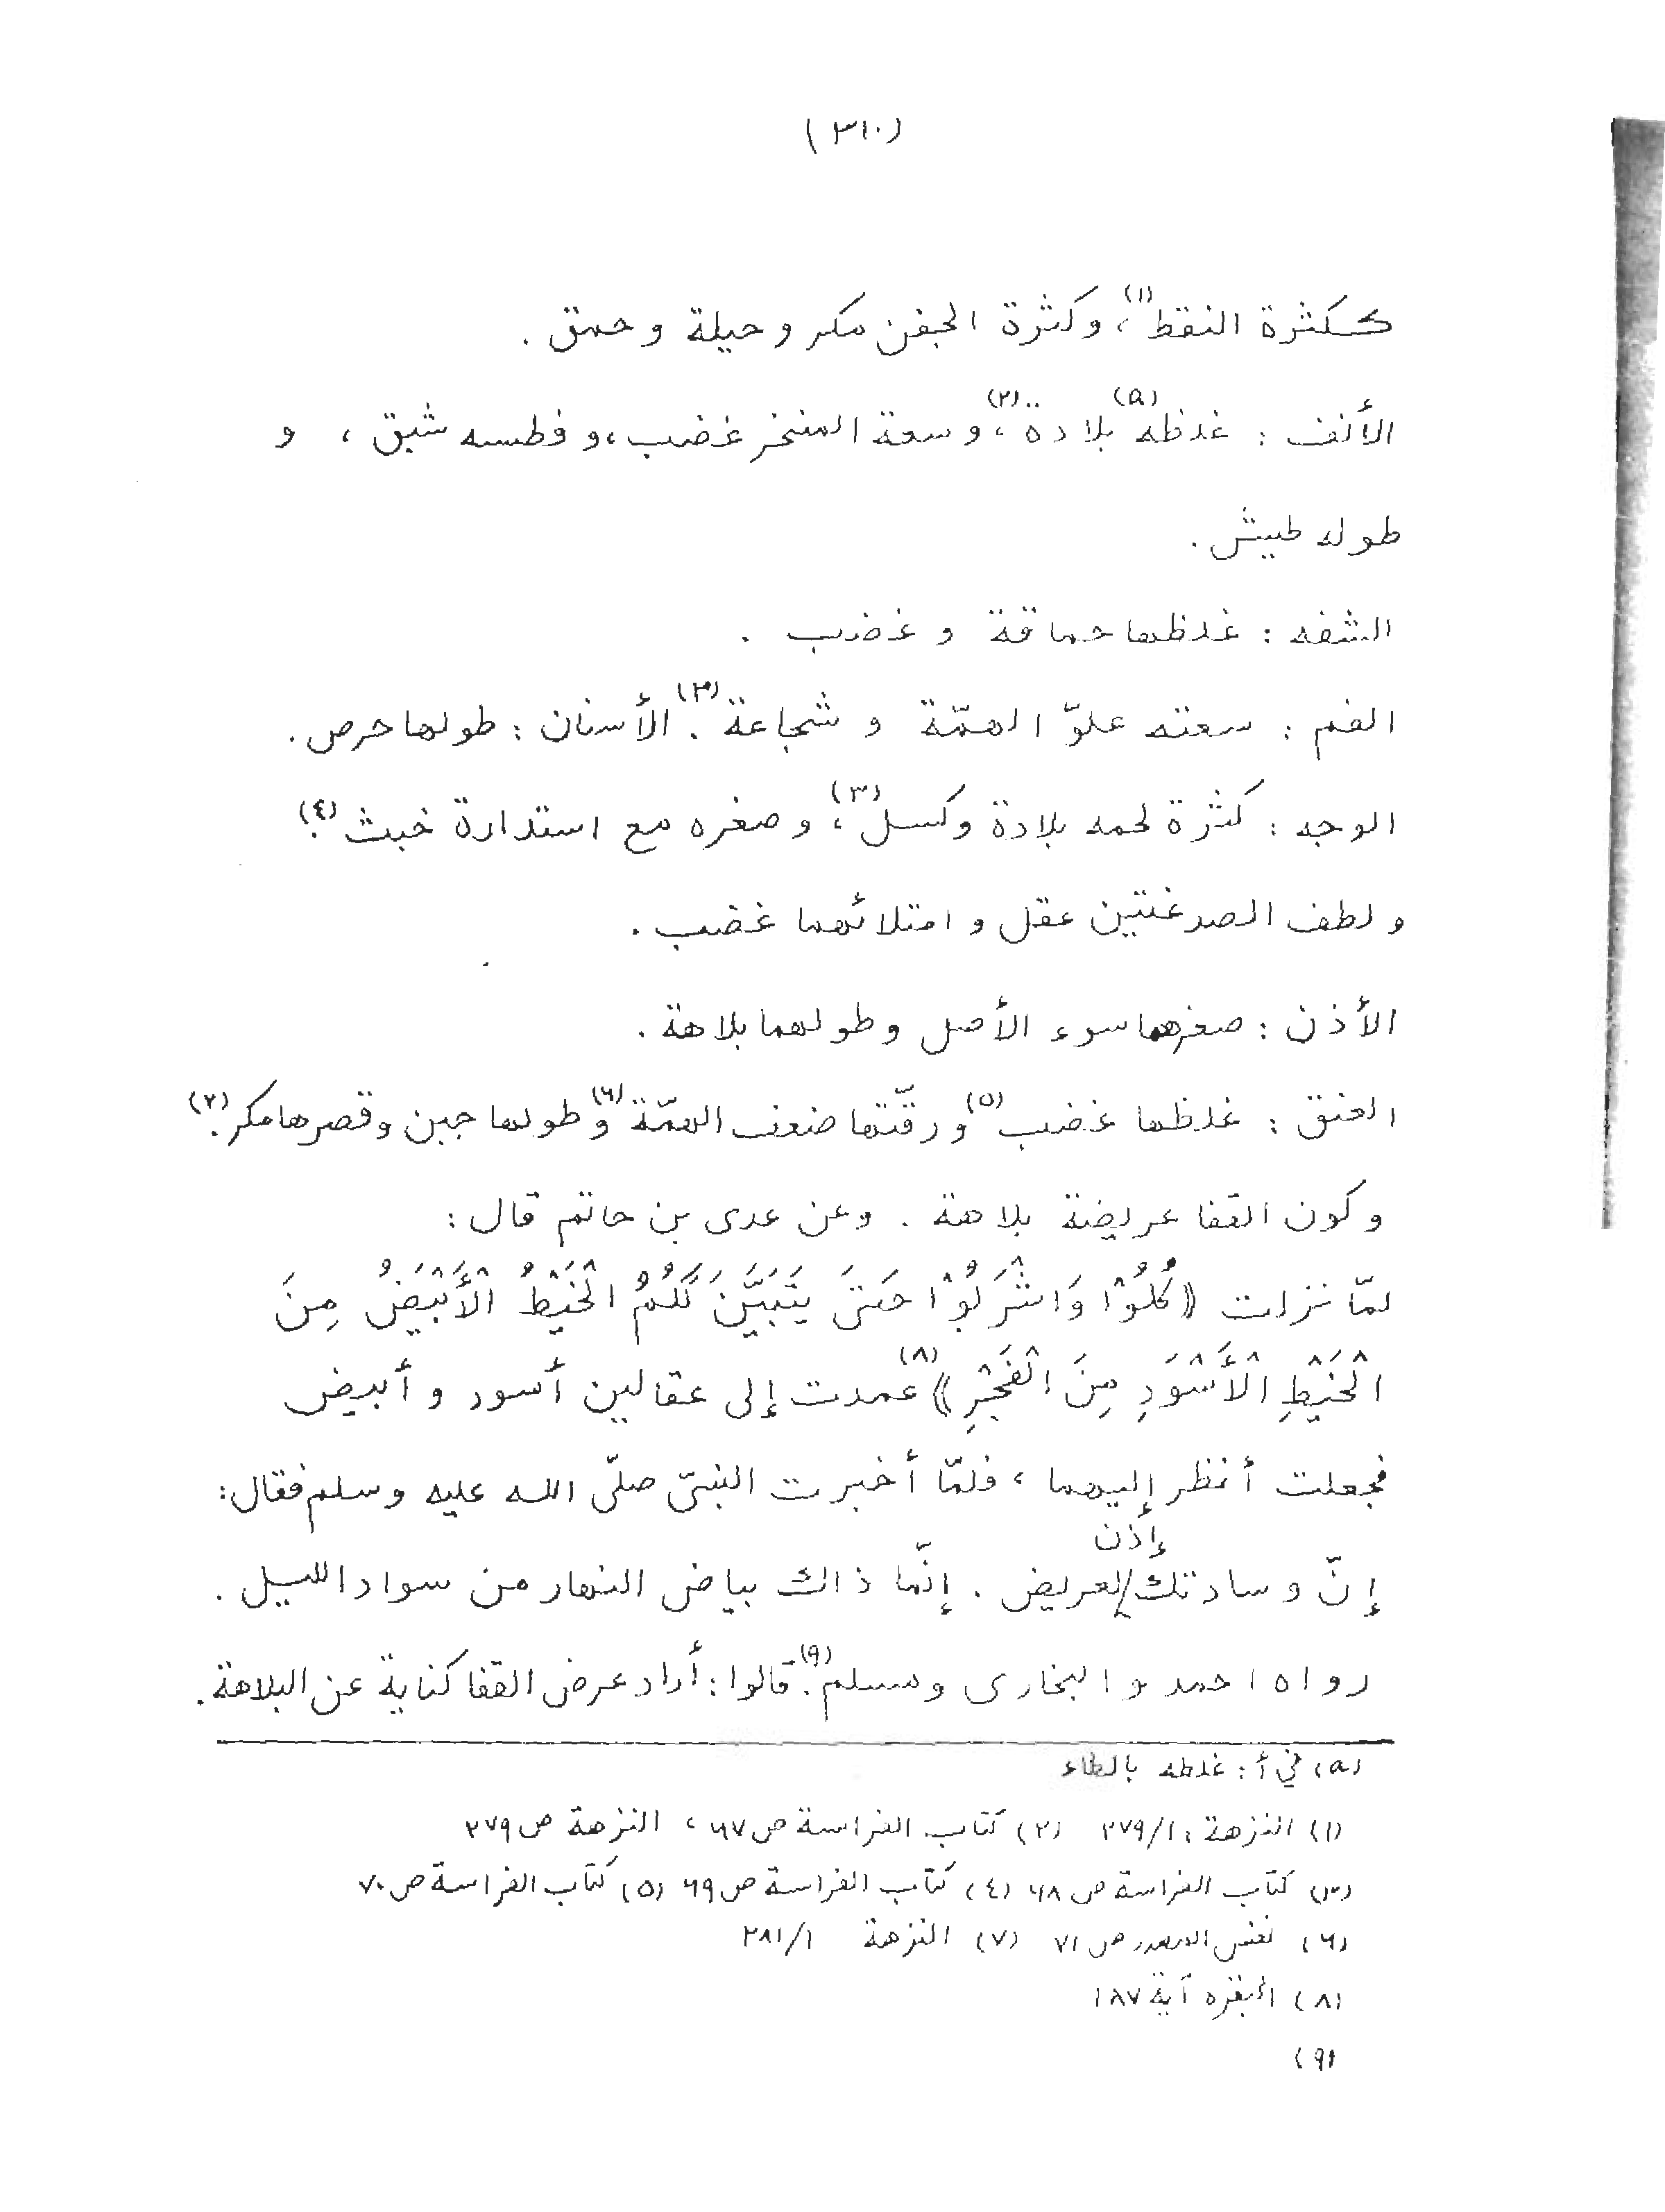 (٣١٠)
ككثرة النقط(١)، وكثرة الجفن مكر وحيلة وحمق .
الأنف : غلظه(a) بلادة(٢)، وسعة المنخر غضب، و فطسه شبق ، و
طوله طيش .
الشفه : غلظها حماقة و غضب .
الفم : سعته علوّ الهمّة و شجاعة(٣). الأسنان : طولها حرص .
الوجه : كثرة لحمه بلادة وكسل(٣)، و صغره مع استدارة خبث(٤).
و لطف الصدغتين عقل و امتلائهما غضب .
الأذن : صغرهما سوء الأصل وطولهما بلاهة .
العنق : غلظها غضب(٥) ورقّتها ضعف الهمّة(٦) وطولها جبن وقصرها مكر(٧).
وكون القفا عريضة بلاهة . وعن عدى بن حاتم قال :
لمّا نزلت ((كُلُوْا وَاشْرَبُوْا حَتىَّ يَتَبَيَّنَ لَكُمُ الْخَيْطُ الْأَبْيَضُ مِنَ
الْخَيْطِ الْأَسْوَدِ مِنَ الْفَجْرِ))(٨) عمدت إلى عقالين أسود و أبيض
فجعلت أنظر إليهما ، فلمّا أخبرت النبىّ صلّى الله عليه وسلم فقال:
إنّ وسادتك/إذن لعريض . إنّما ذالك بياض النهار من سواد الليل .
رواه احمد و البخارى ومسلم(٩). قالوا : أراد عرض القفا كناية عن البلاهة .
(a) في أ : غلطه بالطاء
(١) النزهة : ٢٧٩/١ (٢) كتاب الفراسة ص ٦٧ ، النزهة ص ٢٧٩
(٣) كتاب الفراسة ص ٦٨ (٤) كتاب الفراسة ص ٦٩ (٥) كتاب الفراسة ص ٧٠
(٦) نفس المصدر ص ٧١ (٧) النزهة ٢٨١/١
(٨) البقره آية ١٨٧
(٩)